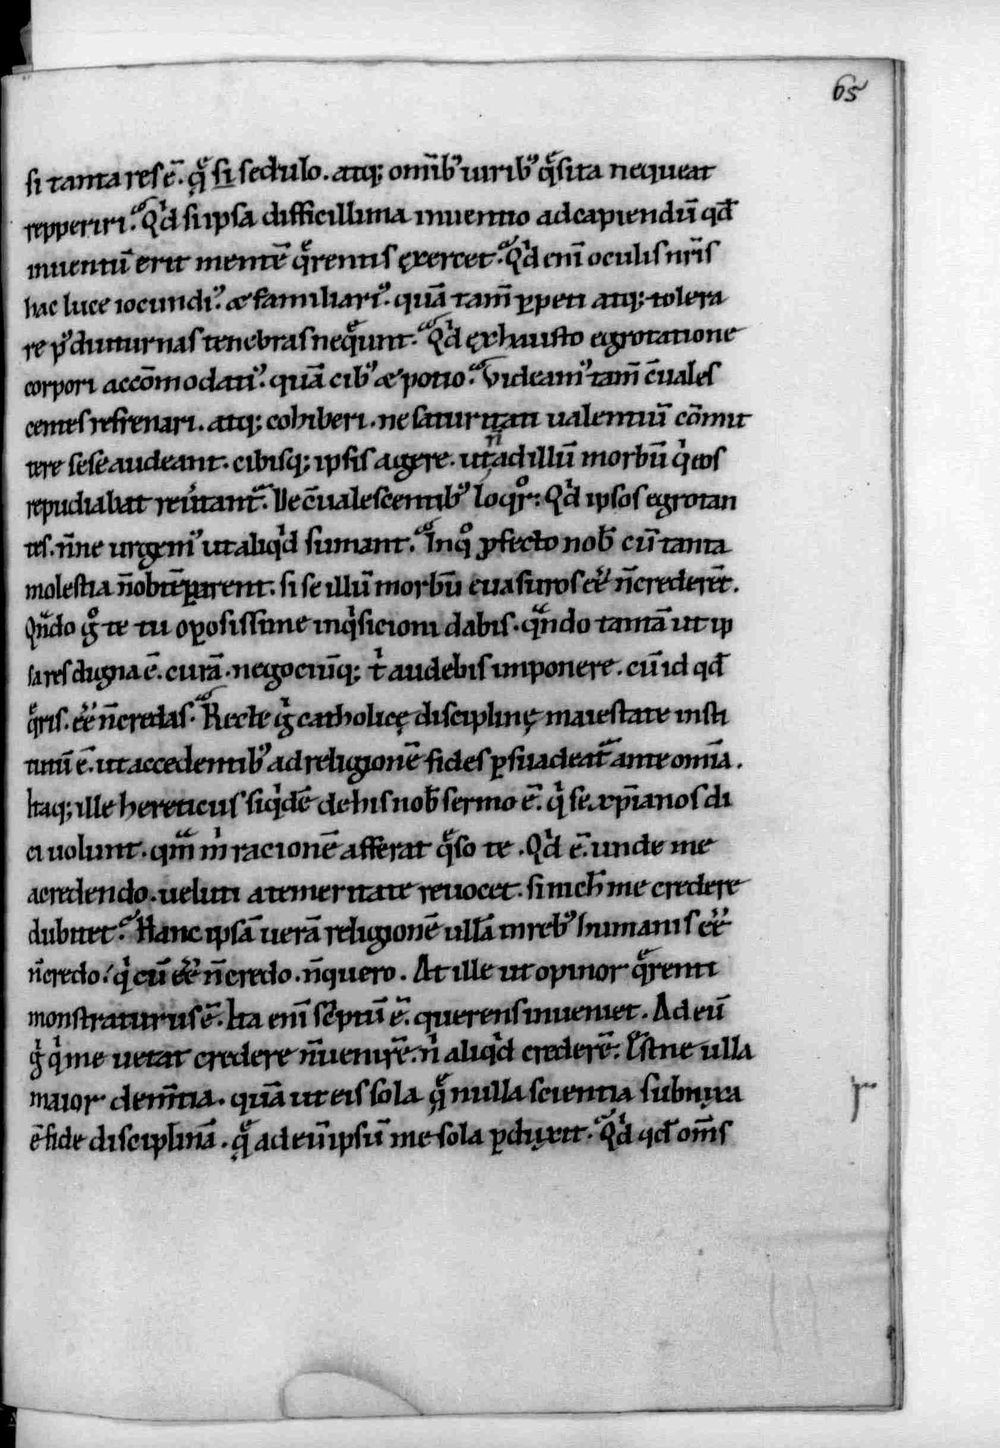 65
si tanta res ē. q̄ si sedulo. atq; omīb' uirib' q̄sita nequeat
repperiri. Qͥd si ipsa difficillima inuentio ad capiendū qđ
inuentū erit mentē q̄rentis ęxercet. Qͥd enī oculis nr̄is
hac luce iocundi'. æ familiari'. quā tam̄ ꝑpeti atq; tolera
re p' diuturnas tenebras neq̄unt. Qͥd ęxhausto egrotatione
corpori accōmodati'. quā cib' æ potio. Videam' tam̄ c̄uales
centes refrenari. atq; cohiberi. ne saturitati ualentiū cōmit
tere sese audeant. cibisq; ipsis agere. ut ad illū morbū qͥ eos
repudiabat reūtant. De c̄ualescentib' loqͦr: Qͥd ipsos egrotan
tes. n̄ne urgem' ut aliqͥd sumant. Inqͦ ꝓfecto nob̄ cū tanta
molestia n̄ obtēꝑarent. si se illū morbū euasuros ēē n̄ crederēt.
Qn̄do gͦ te tu oꝑosissime inqͥsicioni dabis. qn̄do tantā ut ip
sa res digna ē. curā. negociūq; t̄ audebis imponere. cū id qđ
q̄ris. ēē n̄ credas. Recte gͥ catholicę disciplinę maiestate insti
tutū ē. ut accedentib' ad religionē fides ꝑsuadeat̄ ante omīa.
Itaq; ille hereticus siqͥdē de his nob̄ sermo ē. qͥ se xp̄ianos di
ci uolunt. qm̄ m̄ racionē afferat q̄so te. Qͥd ē. unde me
a credendo. ueluti a temeritate reuocet. si nich̄ me credere
dubitet. Hanc ipsā uerā religionē ullā in reb' humanis ēē
n̄ credo. qͥ cū ēē n̄ credo. n̄ quero. At ille ut opinor q̄renti
monstraturus ē. Ita enī scͥptū ē. querens inueniet. Ad eū
gͥ qͥ me uetat credere n̄ uenirē. nͥ aliqͥd crederē. Est ne ulla
maior dem̄tia. quā ut eis sola q̄ nulla scientia subnixa
ē fide disciplīnā. q̄ ad eū ipsū me sola ꝑduxit. Qͥd qđ om̄s